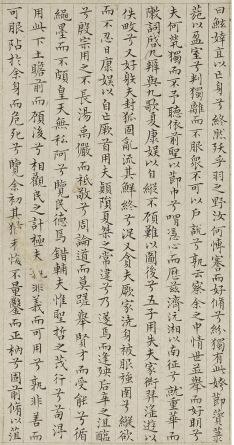 曰鮌婞直以亡身兮終然殀乎羽之野汝何博謇而好脩兮紛獨有此姱節薋菉
葹以盈室兮判獨離而不服衆不可以戶説兮孰云察余之中情世並舉而好朋兮
夫何煢獨而不予聽依前聖以節中兮喟憑心而歷茲濟沅湘以南征兮就重華而
敶詞啟九辯與九歌兮夏康娛以自縱不顧難以圖後兮五子用失夫家衖羿淫遊以
佚畋兮又好射夫封狐固亂流其鮮終兮浞又貪夫厥家澆身被服強圉兮縱欲
而不忍日康娛以自忘兮厥首用夫顛隕夏桀之常違兮乃遂焉而逢殃后辛之菹醢
兮殷宗用之不長湯禹儼而祗敬兮周論道而莫差舉賢才而授能兮循
繩墨而不頗皇天無私阿兮覽民德焉錯輔夫惟聖哲之茂行兮苟得
用此下土瞻前而顧後兮相觀民之計極夫孰非義而可用兮孰非善而
可服阽余身而危死兮覽余初其猶悔不量鑿而正枘兮固前脩以菹